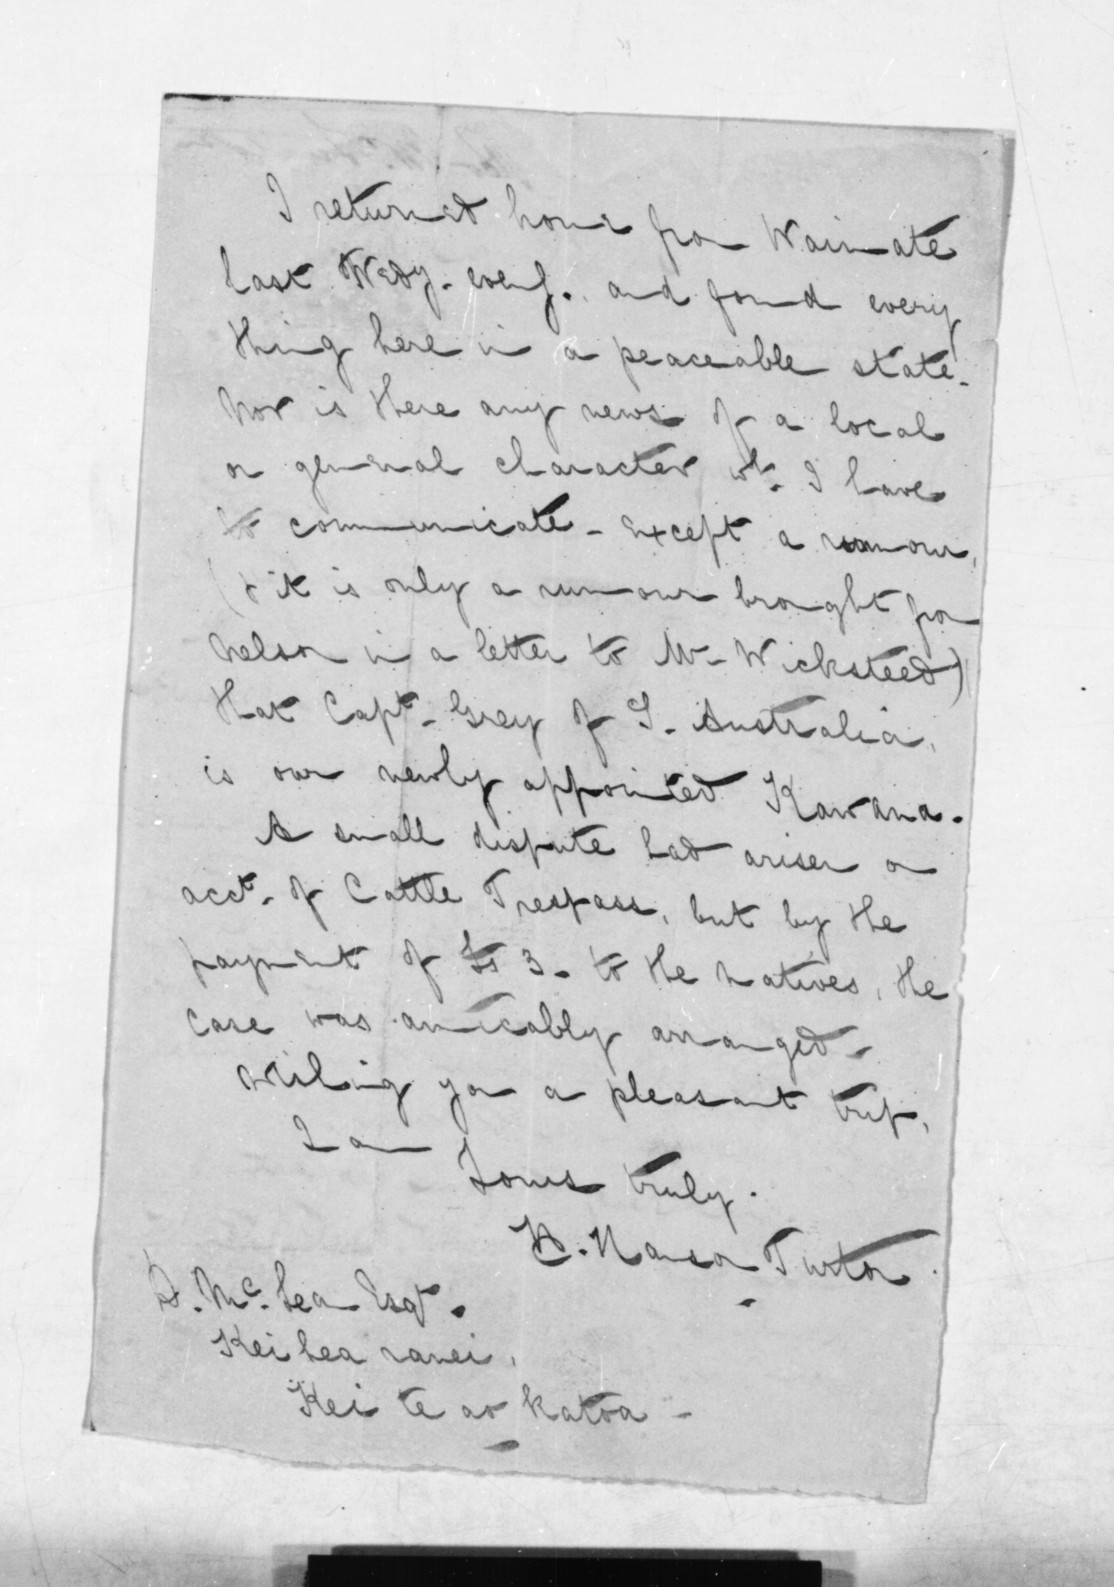 I returned home from Waimate
last Wedy. eveng. and found every
thing here in a peaceable state.
Nor is there any news of a local
or general character wh. I have
to communicate - except a rumour,
(& it is only a rumour brought from
Nelson in a letter to Mr. Wicksteed)
that Capt. Grey of S. Australia,
is our newly appointed Kawana.
A small dispute had arisen on
acct. of Cattle Trespass, but by the
payment of 3. to the natives, the
case was amicably arranged.
Wishing you a pleasant trip,
I am
Yours truly.
H. Hanson Turton.
D. McLean Esqr.
Kei hea ranei,
Kei te ao katoa -